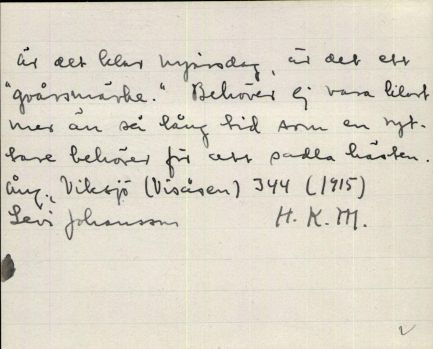 är det klar nyårsdag, är det ett
"goårsmärke." Behöver ej vara klart
mer än så lång tid som en ryt-
tare behöver för att sadla hästen.
Ång., Viksjö (Visåsen) 344 (1915)
Levi Johansson H. K. M.